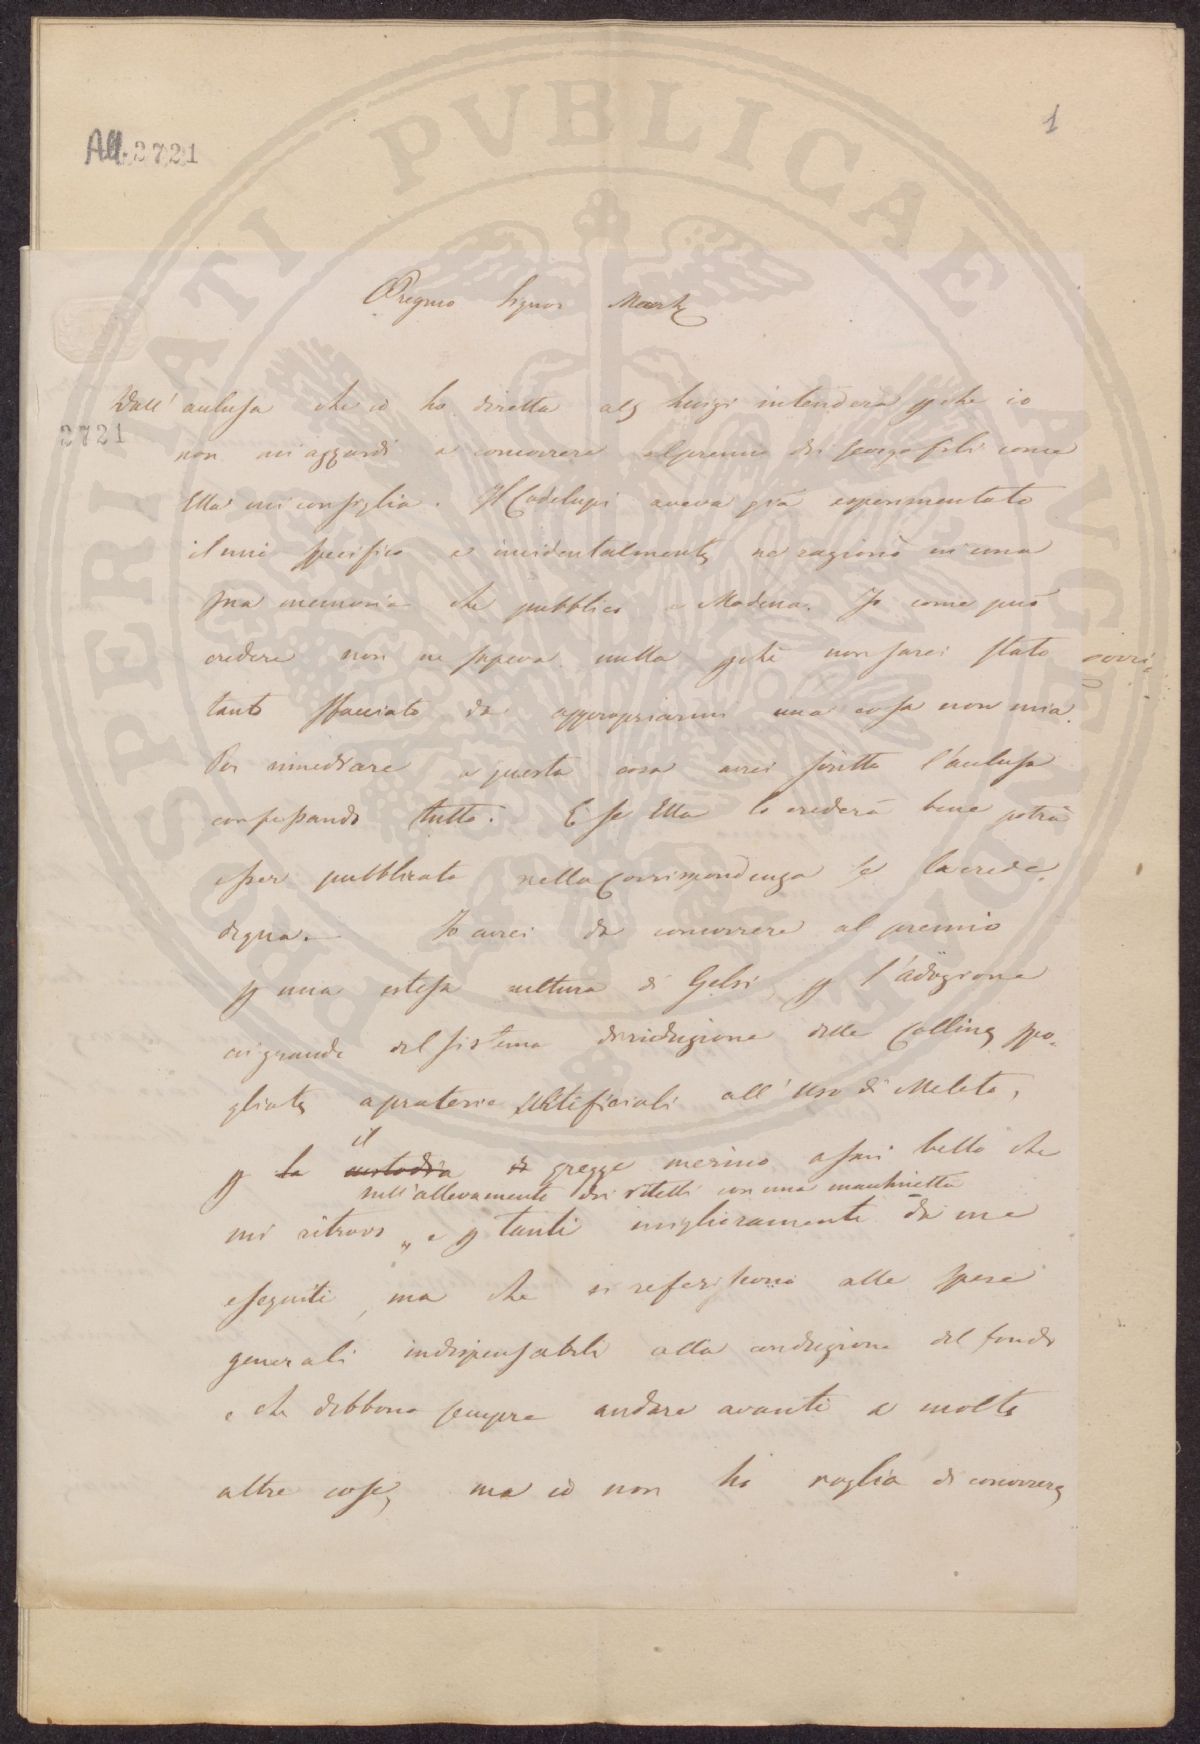 All. 2721
1
Pregmo Signor March
2721
Dall' aclusa che io ho diretta a Luigi intenderà pche io
non mi azzardi a concorrere al premio dei georgofili come
Ella mi consiglia. Il Cadelupi aveva già esperimentato
il mio specifico e incidentalmente ne ragionò in una
sua memoria che pubblicò a Modena. Io come può
credere non ne sapeva nulla pchè non sarei stato
tanto sfacciato da appropriarmi una cosa non mia.
Per rimediare a questa cosa avrei scritto l'aclusa
confessando tutto. E se Ella lo crederà bene potrà
esser pubblicata nella Corrispondenza se la crede
degna. Io avrei da concorrere al premio
p una estesa cultura di Gelsi, p l'adozione
in grande del sistema di riduzione delle Colline spo-
gliate a praterie artificiali all'uso di Meleto,
p la custodia di il gregge merino assai bello che
nell'allevamento dei vitelli con una macchinetta
mi ritrovo „ e p tanti miglioramenti da me
eseguiti, ma che si referiscono alle spese
generali indispensabili alla conduzione del fondo
e che debbono sempre andare avanti a molte
altre cose, ma io non ho voglia di concorrere